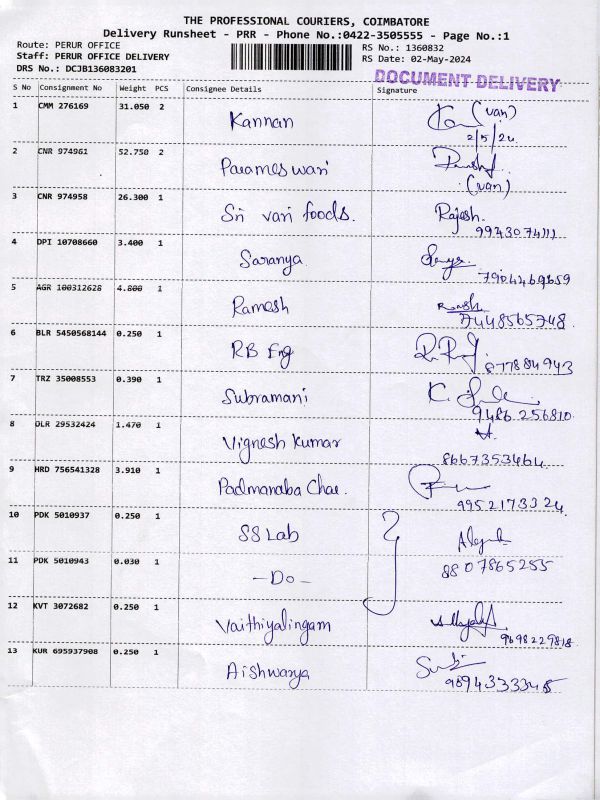 THE PROFESSIONAL COURIERS, COIMBATORE
Delivery Runsheet - PRR - Phone No.:0422-3505555 - Page No.:1
Route: PERUR OFFICE RS No.: 1360832
Staff: PERUR OFFICE DELIVERY RS Date: 02-May-2024
DRS No.: DCJB136083201
DOCUMENT DELIVERY
S No Consignment No Weight PCS Consignee Details Signature
1 CMM 276169 31.050 2 Kannan (van)
2/5/24
2 CNR 974961 52.750 2 Parameswari
(van)
3 CNR 974958 26.300 1 Sri vari foods. Rajesh.
9943074111
4 DPI 10708660 3.400 1 Saranya
7904469659
5 AGR 100312628 4.800 1 Ramesh
7448565748
6 BLR 5450568144 0.250 1 RB Eng
877884943
7 TRZ 35008553 0.390 1 Subramani
9486 256810
8 DLR 29532424 1.470 1 Vignesh Kumar
8667353464
9 HRD 756541328 3.910 1 Padmanaba Char.
9952173324
10 PDK 5010937 0.250 1 SS Lab
11 PDK 5010943 0.030 1 - Do - 8807865255
12 KVT 3072682 0.250 1 Vaithiyalingam
9698229818
13 KUR 695937908 0.250 1 Aishwarya
9894333345